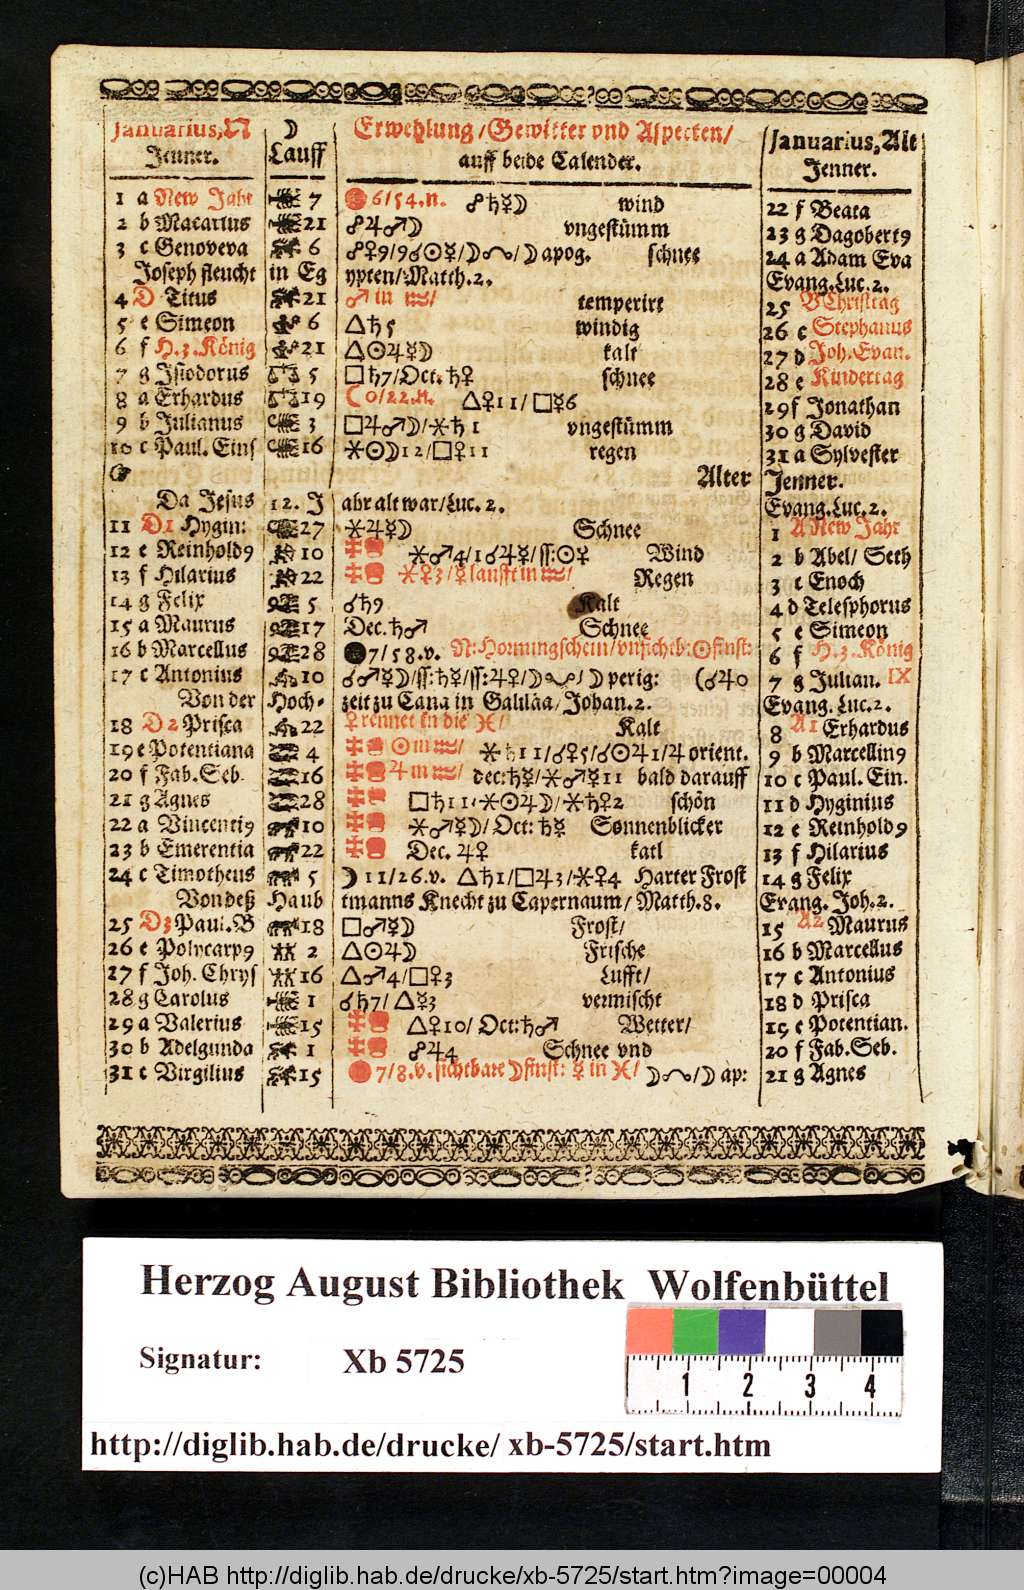 Januarius, N ☽ Erwehlung/Gewitter vnd Aspecten/ Januarius, Alt
Jenner. Lauff auff beide Calender. Jenner.
1 a New Jahr 7 6/54.n. ☍♄☿☽ wind 22 f Beata
2 b Macarius 21 ☍♃♂☽ vngestümm 23 g Dagobert9
3 c Genoveva 6 ☍♀9/9☌☉☿/☽☊/☽ apog. schnee 24 a Adam Eva
Joseph fleucht in Eg ypten/Matth.2. Evang. Luc.2.
4 D Titus 21 ♂ in ♒/ temperirt 25 Christtag
5 e Simeon 6 △♄5 windig 26 c Stephanus
6 f H.3.König 21 △☉♃☿☽ kalt 27 d Joh.Evan.
7 g Isiodorus 5 □♄7/Oct.♄♀ schnee 28 e Kindertag
8 a Erhardus 19 ☾0/22.n. △♀11/□☿6 29 f Jonathan
9 b Julianus 3 □♃♂☽/⚹♄1 vngestümm 30 g David
10 c Paul. Eins 16 ⚹☉☽12/□♀11 regen 31 a Sylvester
Alter Jenner.
Da Jesus 12. J ahr alt war/Luc.2. Evang. Luc.2.
11 D1 Hygin: 27 ⚹♃☿☽ Schnee 1 A New Jahr
12 e Reinhold9 10 ⚹♂4/1☌♃☿/ss:☉☿ Wind 2 b Abel/ Seth
13 f Hilarius 22 ⚹♀3/☿laufft in ♒/ Regen 3 c Enoch
14 g Felix 5 ☌♄9 Kalt 4 d Telesphorus
15 a Maurus 17 Dec.♄♂ Schnee 5 e Simeon
16 b Marcellus 28 ●7/58.v. N:Hornungschein/vnsichtb:☉finst: 6 f H.3.König
17 c Antonius 10 ☌♂☿☽/ss:♄☿/ss:♃♀/☽☋/☽ perig: (☌♃0 7 g Julian. IX
Von der Hoch- zeit zu Cana in Galiläa/Johan.2. Evang. Luc.2.
18 D2 Prisca 22 ♀rennet in die ♓/ Kalt 8 A1 Erhardus
19 e Potentiana 4 ☉ in ♒/ ⚹♄11/☌♀5/☌☉♃1/♃ orient. 9 b Marcellin9
20 f Fab.Seb. 16 ♃ in ♒/ dec:♄☿/⚹♂☿11 bald darauff 10 c Paul. Ein.
21 g Agnes 28 □♄11/⚹☉♃☽/⚹♄♀2 schön 11 d Hyginius
22 a Vincenti9 10 ⚹♂☿☽/Oct:♄☿ Sonnenblicker 12 e Reinhold9
23 b Emerentia 22 Dec. ♃♀ katl 13 f Hilarius
24 c Timotheus 5 ☽11/26.v. △♄1/□♃3/⚹♀4 Harter Frost 14 g Felix
Von deß Haub tmanns Knecht zu Capernaum/ Matth.8. Evang. Joh.2.
25 D3 Paul.B 18 □♂☿☽ Frost/ 15 A2 Maurus
26 e Polycarp9 2 △☉♃☽ Frische 16 b Marcellus
27 f Joh. Chrys 16 △♂4/□♀3 Lufft/ 17 c Antonius
28 g Carolus 1 ☌♄7/△☿3 vermischt 18 d Prisca
29 a Valerius 15 △♀10/Oct:♄♂ Wetter/ 19 e Potentian.
30 b Adelgunda 1 ☍♃4 Schnee vnd 20 f Fab.Seb.
31 c Virgilius 15 7/8.v. sichtbare ☽finst: ☿ in ♓/ ☽☊/☽ ap: 21 g Agnes
Herzog August Bibliothek Wolfenbüttel
Signatur: Xb 5725
1 2 3 4
http://diglib.hab.de/drucke/ xb-5725/start.htm
(c)HAB http://diglib.hab.de/drucke/xb-5725/start.htm?image=00004